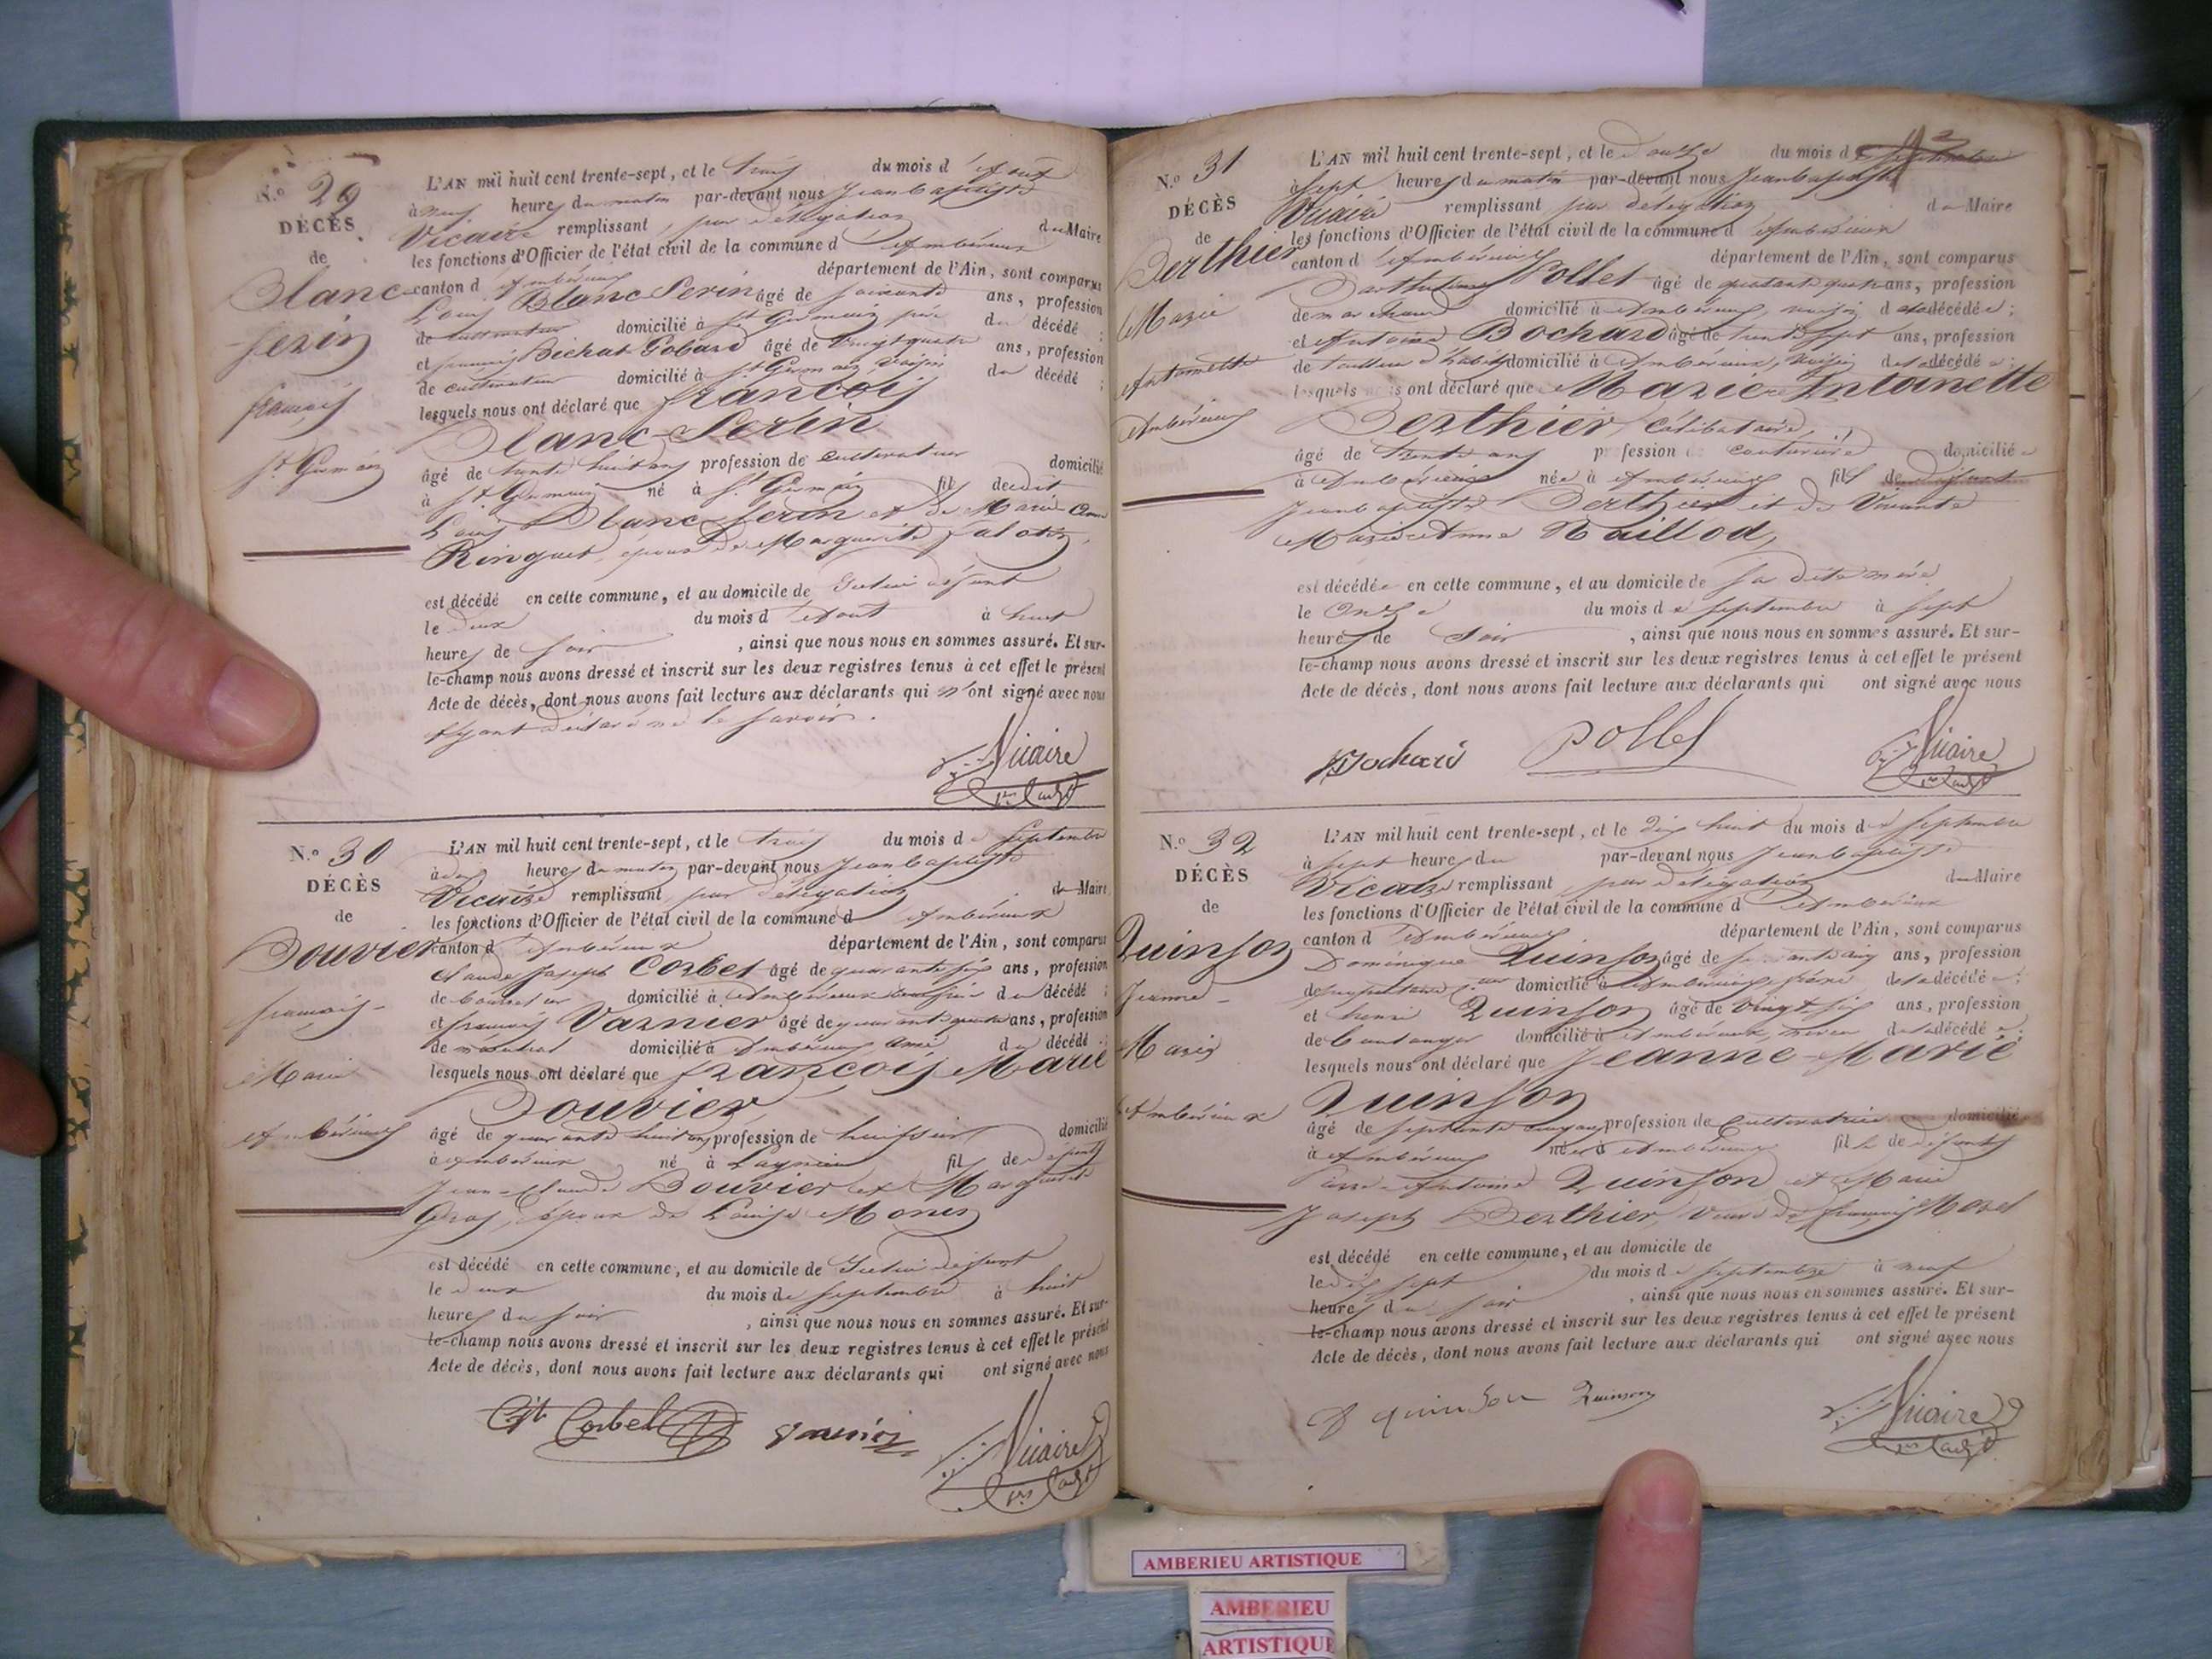 N.o 29
DÉCÈS
de
Blanc
Serin
françois
St Germain
L'AN mil huit cent trente-sept, et le trois du mois d'Aout
à neuf heures du matin par-devant nous Jean baptiste
Vicaire remplissant par délégation du Maire
les fonctions d'Officier de l'état civil de la commune d'Ambérieux
canton d'Ambérieux département de l'Ain, sont comparus
Louis Blanc Serin âgé de soixante ans, profession
de cultivateur domicilié à St Germain père du décédé ;
et françois Bichat Gobard âgé de vingt quatre ans, profession
de cultivateur domicilié à St Germain voisin du décédé ;
lesquels nous ont déclaré que françois
Blanc-Serin
âgé de trente huit ans profession de cultivateur domicilié
à St Germain né à St Germain fil dudit
Louis Blanc Serin et de Marie Anne
Ringuet, époux de Marguerite
est décédé en cette commune, et au domicile de défunt
le deux du mois d'Aout à huit
heures de soir, ainsi que nous nous en sommes assuré. Et sur-
le-champ nous avons dressé et inscrit sur les deux registres tenus à cet effet le présent
Acte de décès, dont nous avons fait lecture aux déclarants qui n'ont signé avec nous
Ayant déclaré ne le savoir.
Vicaire
N.o 30
DÉCÈS
de
Bouvier
françois
Marie
Ambérieux
L'AN mil huit cent trente-sept, et le trois du mois de Septembre
à heures du matin par-devant nous Jean baptiste
Vicaire remplissant par délégation du Maire
les fonctions d'Officier de l'état civil de la commune d'Ambérieux
canton d'Ambérieux département de l'Ain, sont comparus
Claude Joseph Corbet âgé de quarante six ans, profession
de domicilié à Ambérieux du décédé ;
et françois Varnier âgé de quarante ans, profession
de domicilié à Ambérieux ami du décédé ;
lesquels nous ont déclaré que françois Marie
Bouvier
âgé de quarante huit ans profession de huissier domicilié
à Ambérieux né à Lagnieu fil de défunt
Jean-Claude Bouvier et Marguerite
Gros, époux de Louise
est décédé en cette commune, et au domicile de défunt
le deux du mois de Septembre à huit
heures du soir, ainsi que nous nous en sommes assuré. Et sur-
le-champ nous avons dressé et inscrit sur les deux registres tenus à cet effet le présent
Acte de décès, dont nous avons fait lecture aux déclarants qui ont signé avec nous
Corbet Varnier Vicaire
N.o 31
DÉCÈS
de
Berthier
Marie
Antoinette
Ambérieux
L'AN mil huit cent trente-sept, et le douze du mois de Septembre
à sept heures du matin par-devant nous Jean baptiste
Vicaire remplissant par délégation du Maire
les fonctions d'Officier de l'état civil de la commune d'Ambérieux
canton d'Ambérieux département de l'Ain, sont comparus
Barthelemy Pollet âgé de quarante quatre ans, profession
de marchand domicilié à Ambérieux, voisin de la décédée ;
et Antoine Bochard âgé de trente sept ans, profession
de tailleur d'habits domicilié à Ambérieux, voisin de la décédée ;
lesquels nous ont déclaré que Marie Antoinette
Berthier, Célibataire,
âgé de trente ans profession de couturière domiciliée
à Ambérieux née à Ambérieux fille de défunt
Jean baptiste Berthier et de vivante
Marie Anne Naillod,
est décédée en cette commune, et au domicile de sa dite mère
le onze du mois de septembre à sept
heures de soir, ainsi que nous nous en sommes assuré. Et sur-
le-champ nous avons dressé et inscrit sur les deux registres tenus à cet effet le présent
Acte de décès, dont nous avons fait lecture aux déclarants qui ont signé avec nous
Bochard Pollet Vicaire
N.o 32
DÉCÈS
de
Quinson
Jeanne
Marie
Ambérieux
L'AN mil huit cent trente-sept, et le dix huit du mois de Septembre
à sept heures du par-devant nous Jean baptiste
Vicaire remplissant par délégation du Maire
les fonctions d'Officier de l'état civil de la commune d'Ambérieux
canton d'Ambérieux département de l'Ain, sont comparus
Dominique Quinson âgé de ans, profession
de propriétaire domicilié à Ambérieux, frère de la décédée ;
et henri Quinson âgé de vingt six ans, profession
de boulanger domicilié à Ambérieux, neveu de la décédée ;
lesquels nous ont déclaré que Jeanne-Marie
Quinson
âgé de septante cinq ans profession de cultivatrice domicilié
à Ambérieux née à Ambérieux fille de défunts
Pierre-Antoine Quinson et Marie
Joseph Berthier, veuve de françois Morel
est décédé en cette commune, et au domicile de
le dix sept du mois de septembre à neuf
heures du soir, ainsi que nous nous en sommes assuré. Et sur-
le-champ nous avons dressé et inscrit sur les deux registres tenus à cet effet le présent
Acte de décès, dont nous avons fait lecture aux déclarants qui ont signé avec nous
D quinson Quinson Vicaire
AMBERIEU ARTISTIQUE
AMBERIEU
ARTISTIQUE